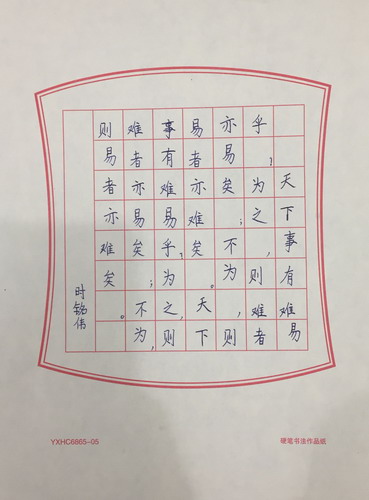 天下事有难易
乎？为之，则难者
亦易矣；不为，则
易者亦难矣。天下
事有难易乎？为之，则
难者亦易矣；不为，
则易者亦难矣。
时铭伟
YXHC6865-05
硬笔书法作品纸